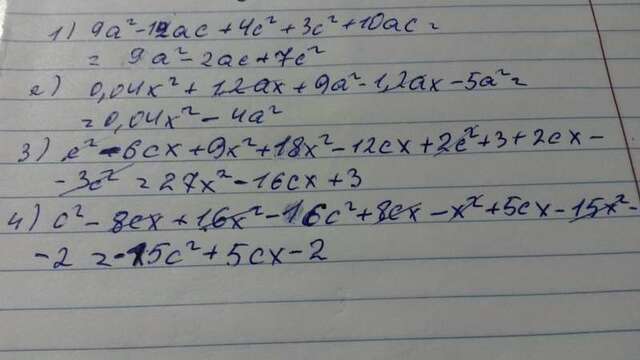 1) 9a² - 12ac + 4c² + 3c² + 10ac =
= 9a² - 2ac + 7c²
2) 0,04x² + 1,2ax + 9a² - 1,2ax - 5a² =
= 0,04x² - 4a²
3) c² - 6cx + 9x² + 18x² - 12cx + 2c² + 3 + 2cx -
- 3c² = 27x² - 16cx + 3
4) c² - 8cx + 16x² - 16c² + 8cx - x² + 5cx - 15x² -
- 2 = -15c² + 5cx - 2